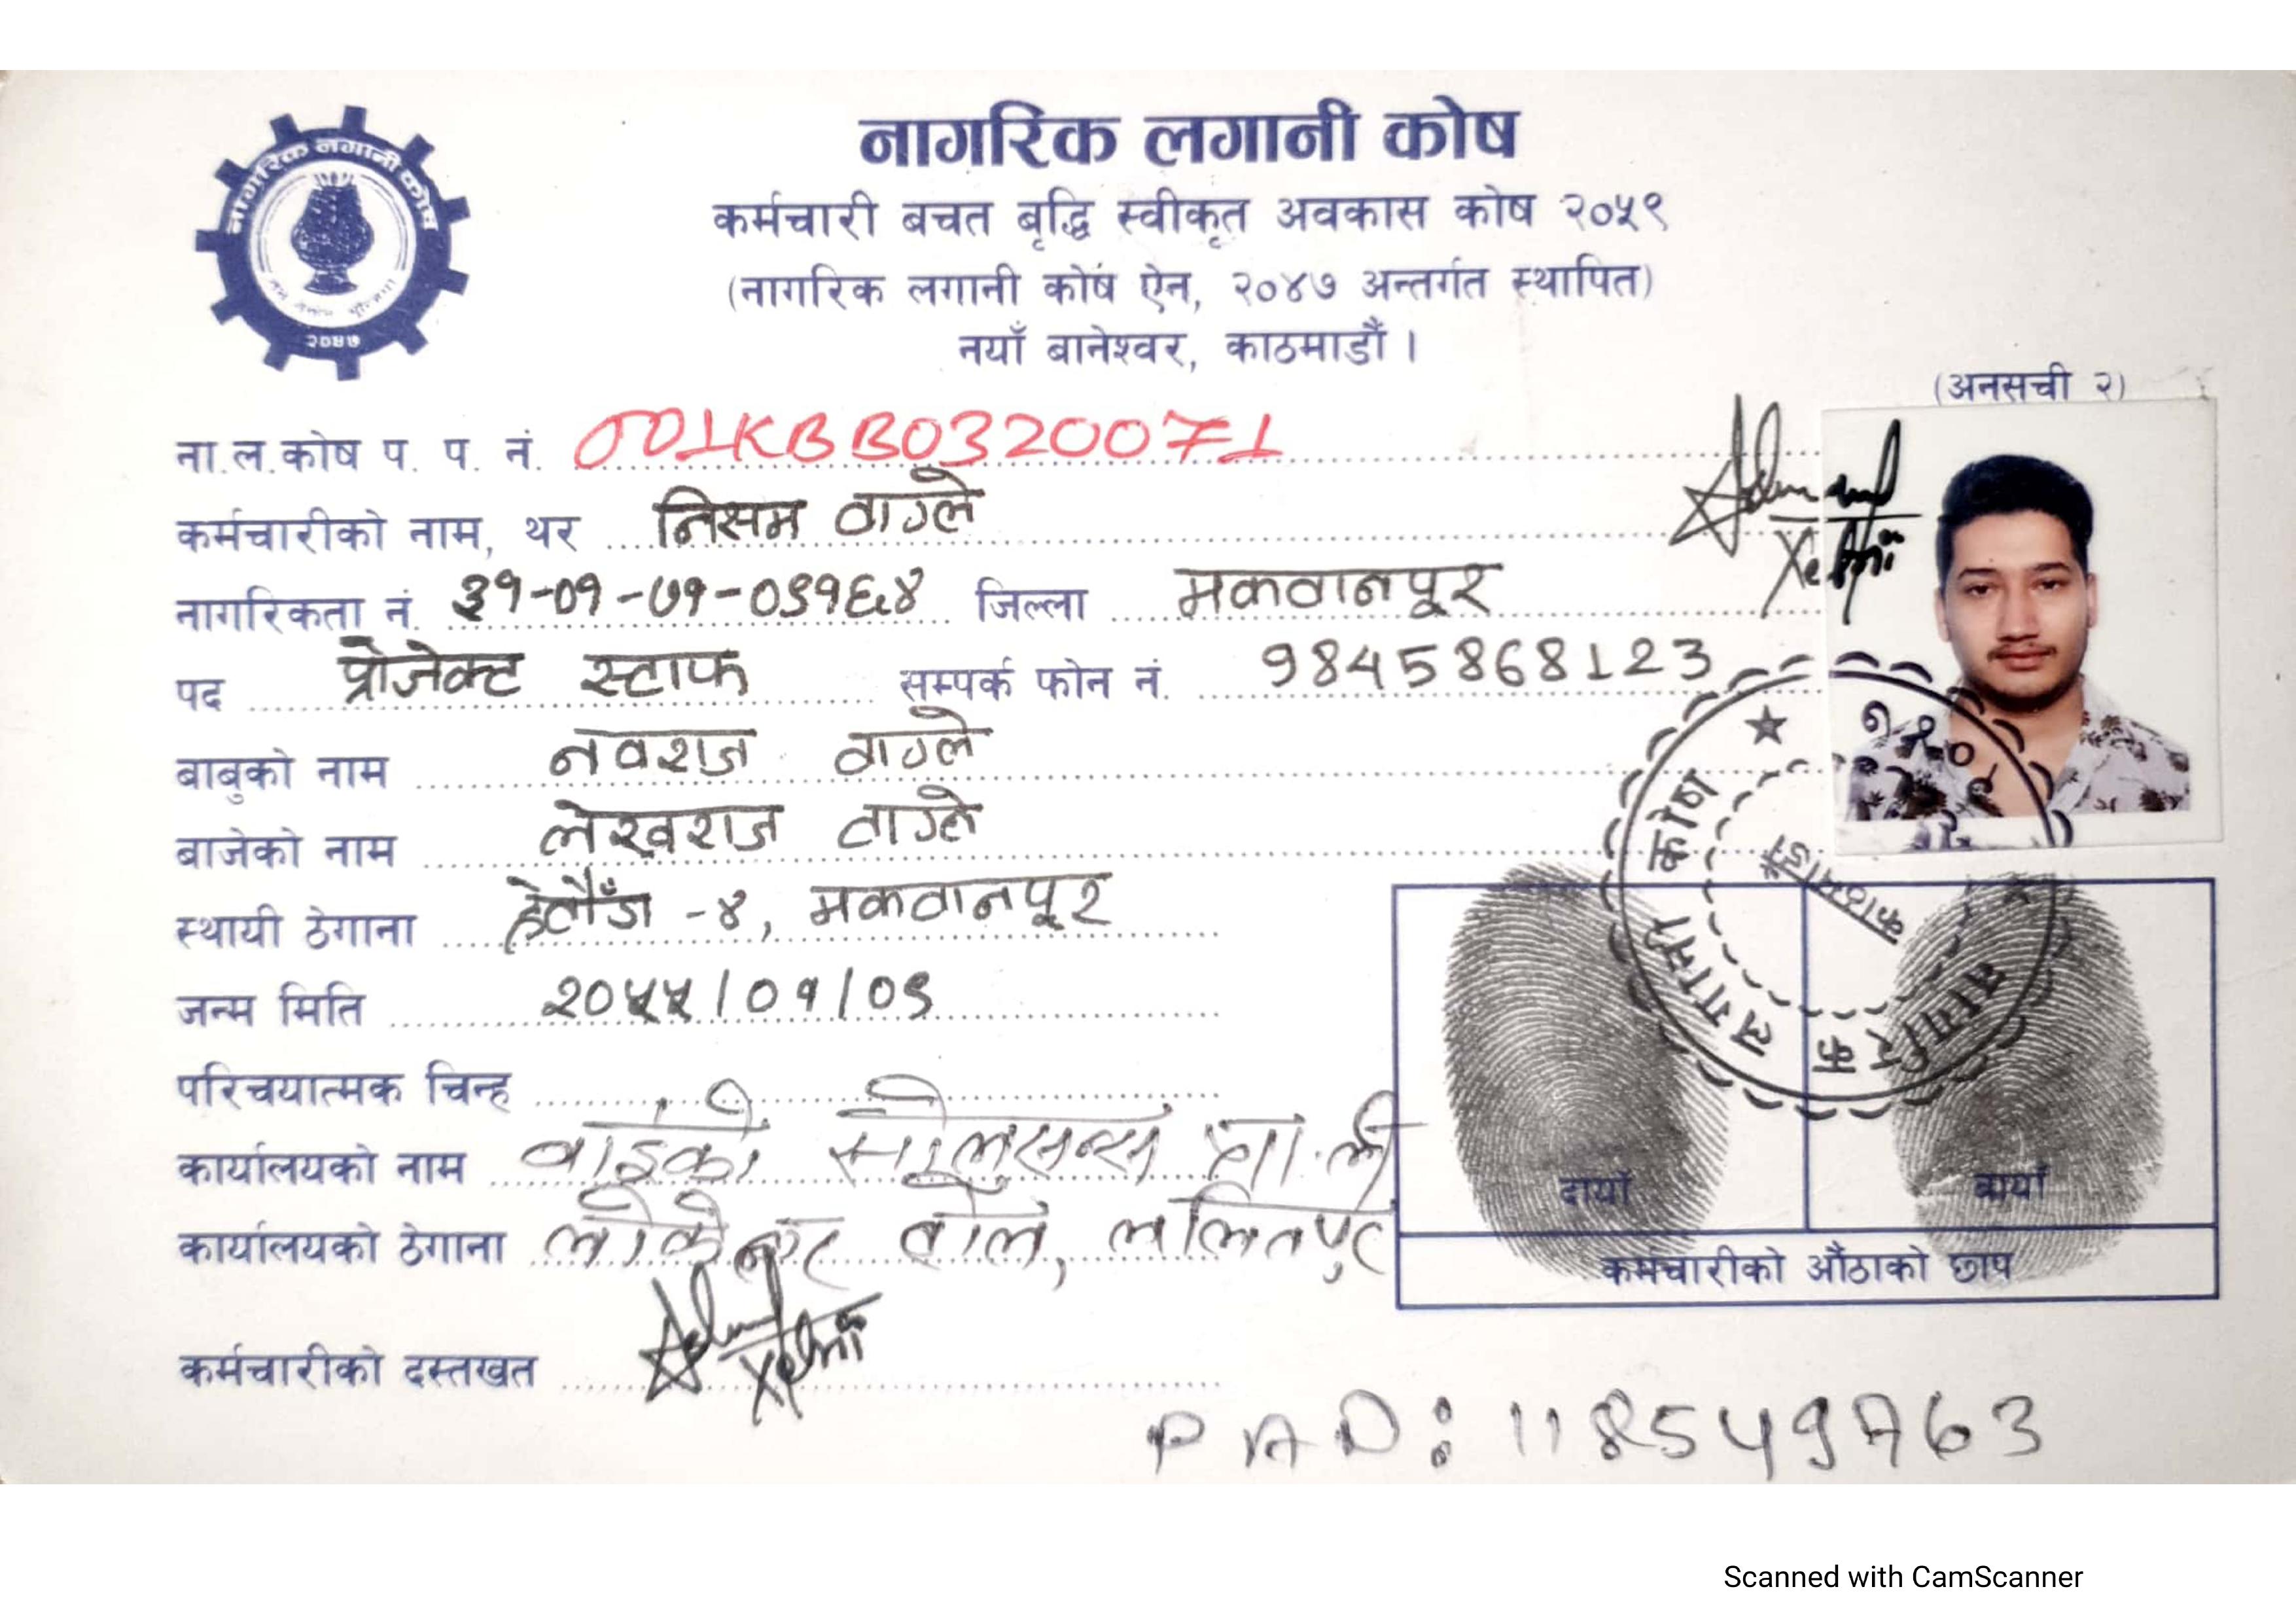 नागरिक लगानी कोष
कर्मचारी बचत बृद्धि स्वीकृत अवकास कोष २०५९
(नागरिक लगानी कोष ऐन, २०४७ अन्तर्गत स्थापित)
नयाँ बानेश्वर, काठमाडौं ।
नागरिक लगानी कोष
२०४७
(अनसची २)
ना.ल.कोष प. प. नं. 001KBB0320071
कर्मचारीको नाम, थर निसम वाग्ले
नागरिकता नं. ३१-०१-७१-०९१६४ जिल्ला मकवानपूर
पद प्रोजेक्ट स्टाफ सम्पर्क फोन नं. 9845868123
बाबुको नाम नवराज वाग्ले
बाजेको नाम लेखराज वाग्ले
स्थायी ठेगाना हेटौँडा -४, मकवानपूर
जन्म मिति २०५५/०१/०९
परिचयात्मक चिन्ह
कार्यालयको नाम वाइको सोलुसन्स प्रा.ली
कार्यालयको ठेगाना टोल, ललितपुर
कर्मचारीको दस्तखत
नागरिक लगानी कोष
काठमाडौं
दायाँ बायाँ
कर्मचारीको औंठाको छाप
PAN: 118549763
Scanned with CamScanner